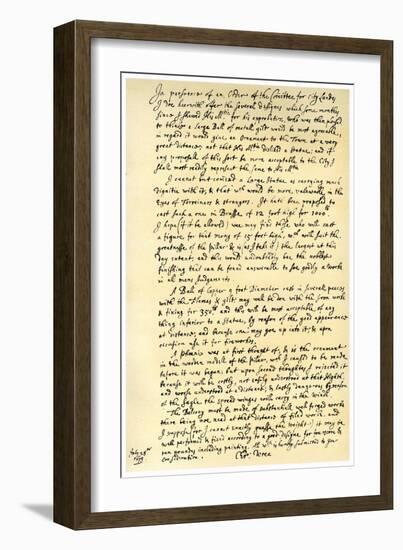 In persuance of an Order of the Comittee for City Lands
I doe heerwith offer the severall designes which some monthes
since I shewed His Matie for his approbation, who was then pleased
to thinke a large Ball of metall gilt would be most agreeable,
in regard it would give an Ornament to the Town at a very
great distance; not that His Matie disliked a Statue; and if
any proposall of this sort be more acceptable to the City I
shall most readily represent the same to His Matie
I cannot but comend a Large Statue as carrying much
dignitie with it, & that wch would be more valewable in the
Eyes of Forreiners & strangers. It hath been proposed to
cast such a one in Brasse of 12 foot high for 1000lb
I hope (if it be allowed) wee may find those who will cast
a figure for that mony of 15 foot high, wch will suit the
greatnesse of the pillar & is (as I take it) the largest at this
day extant; and this would undoubtedly bee the noblest
finishing that can be found answerable to soe goodly a worke
in all mens Judgments.
A Ball of Copper 9 foot Diameter cast in severall peeces
with the Flames & gilt may well be don with the Iron worke
& fixing for 350lb and this will be most acceptable of any
thing inferior to a Statue, by reason of the good appearance
at distance, and because one may goe up into it; & upon
occasion use it for fireworks.
A phœnix was at first thought of, & is the ornament
in the wooden modell of the pillar, wch I caused to be made
before it was begun: but upon second thoughts I rejected it
because it will be costly, not easily understood at that Highth,
and worse understood at a distance; & lastly dangerous by reason
of the sayle the spread winges will carry in the winde.
The Balcony must be made of substantiall well forged worke
there being noe need at that distance of filed worke, and
I suppose (for I cannot exactly guesse the weight) it may be
well performed & fixed according to a good designe for
including painting. All wch is humbly submitted to your
consideration.
July 28th
Chr: Wren